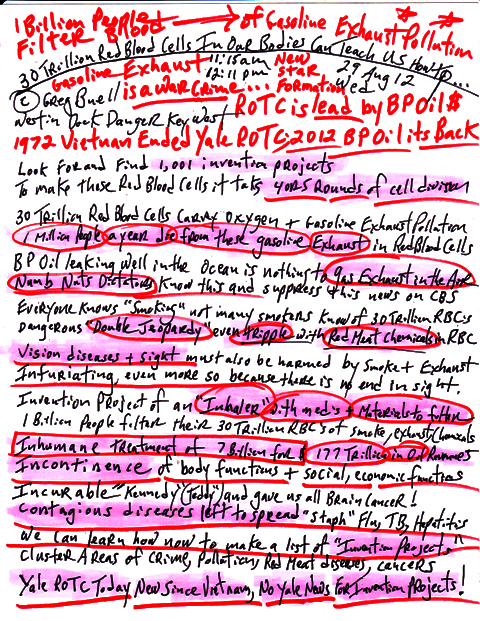 1 Billion People → of Gasoline Exhaust Pollution
Filter Blood
30 Trillion Red Blood Cells In Our Bodies Can Teach Us How to...
Gasoline Exhaust 11:15am New 29 Aug 12
is a War Crime... 12:11 pm Star Formation Wed
© Greg Buell
West in Dock Danger Key West ROTC is lead by BP Oil $
1972 Vietnam Ended Yale ROTC; 2012 BP Oil its Back
Look For and Find 1,001 invention projects
To make these Red Blood Cells it takes 40rs Rounds of cell division
30 Trillion Red Blood Cells Carry Oxygen + Gasoline Exhaust Pollution
1 Million People a year die from these gasoline Exhaust in Red Blood Cells
BP Oil leaking well in the Ocean is nothing to gas Exhaust in the Air
Numb Nuts Dictators Know this and suppress this news on CBS
Everyone knows "Smoking" not many smokers know of 30 Trillion RBC's
Dangerous Double Jeopardy even tripple with Red Meat Chemicals in RBC
Vision diseases + sight must also be harmed by Smoke + Exhaust
Infuriating, even more so because there is no end in sight.
Invention Project of an "Inhaler" with meds + Materials to filter
1 Billion People filter their 30 Trillion RBC's of smoke, exhaust, chemicals
Inhumane Treatment of 7 Billion for $ 177 Trillion in Oil Revenues
Incontinence of body functions + social, economic functions
Incurable "Kennedy (Teddy") and gave us all Brain Cancer!
Contagious diseases left to spread "staph" Flu, TB, Hepatitis
We can learn how now to make a list of "Invention Projects"
Cluster Areas of Crime, Pollution, Red Meat diseases, cancers
Yale ROTC Today New Since Vietnam, No Yale News For Invention Projects!